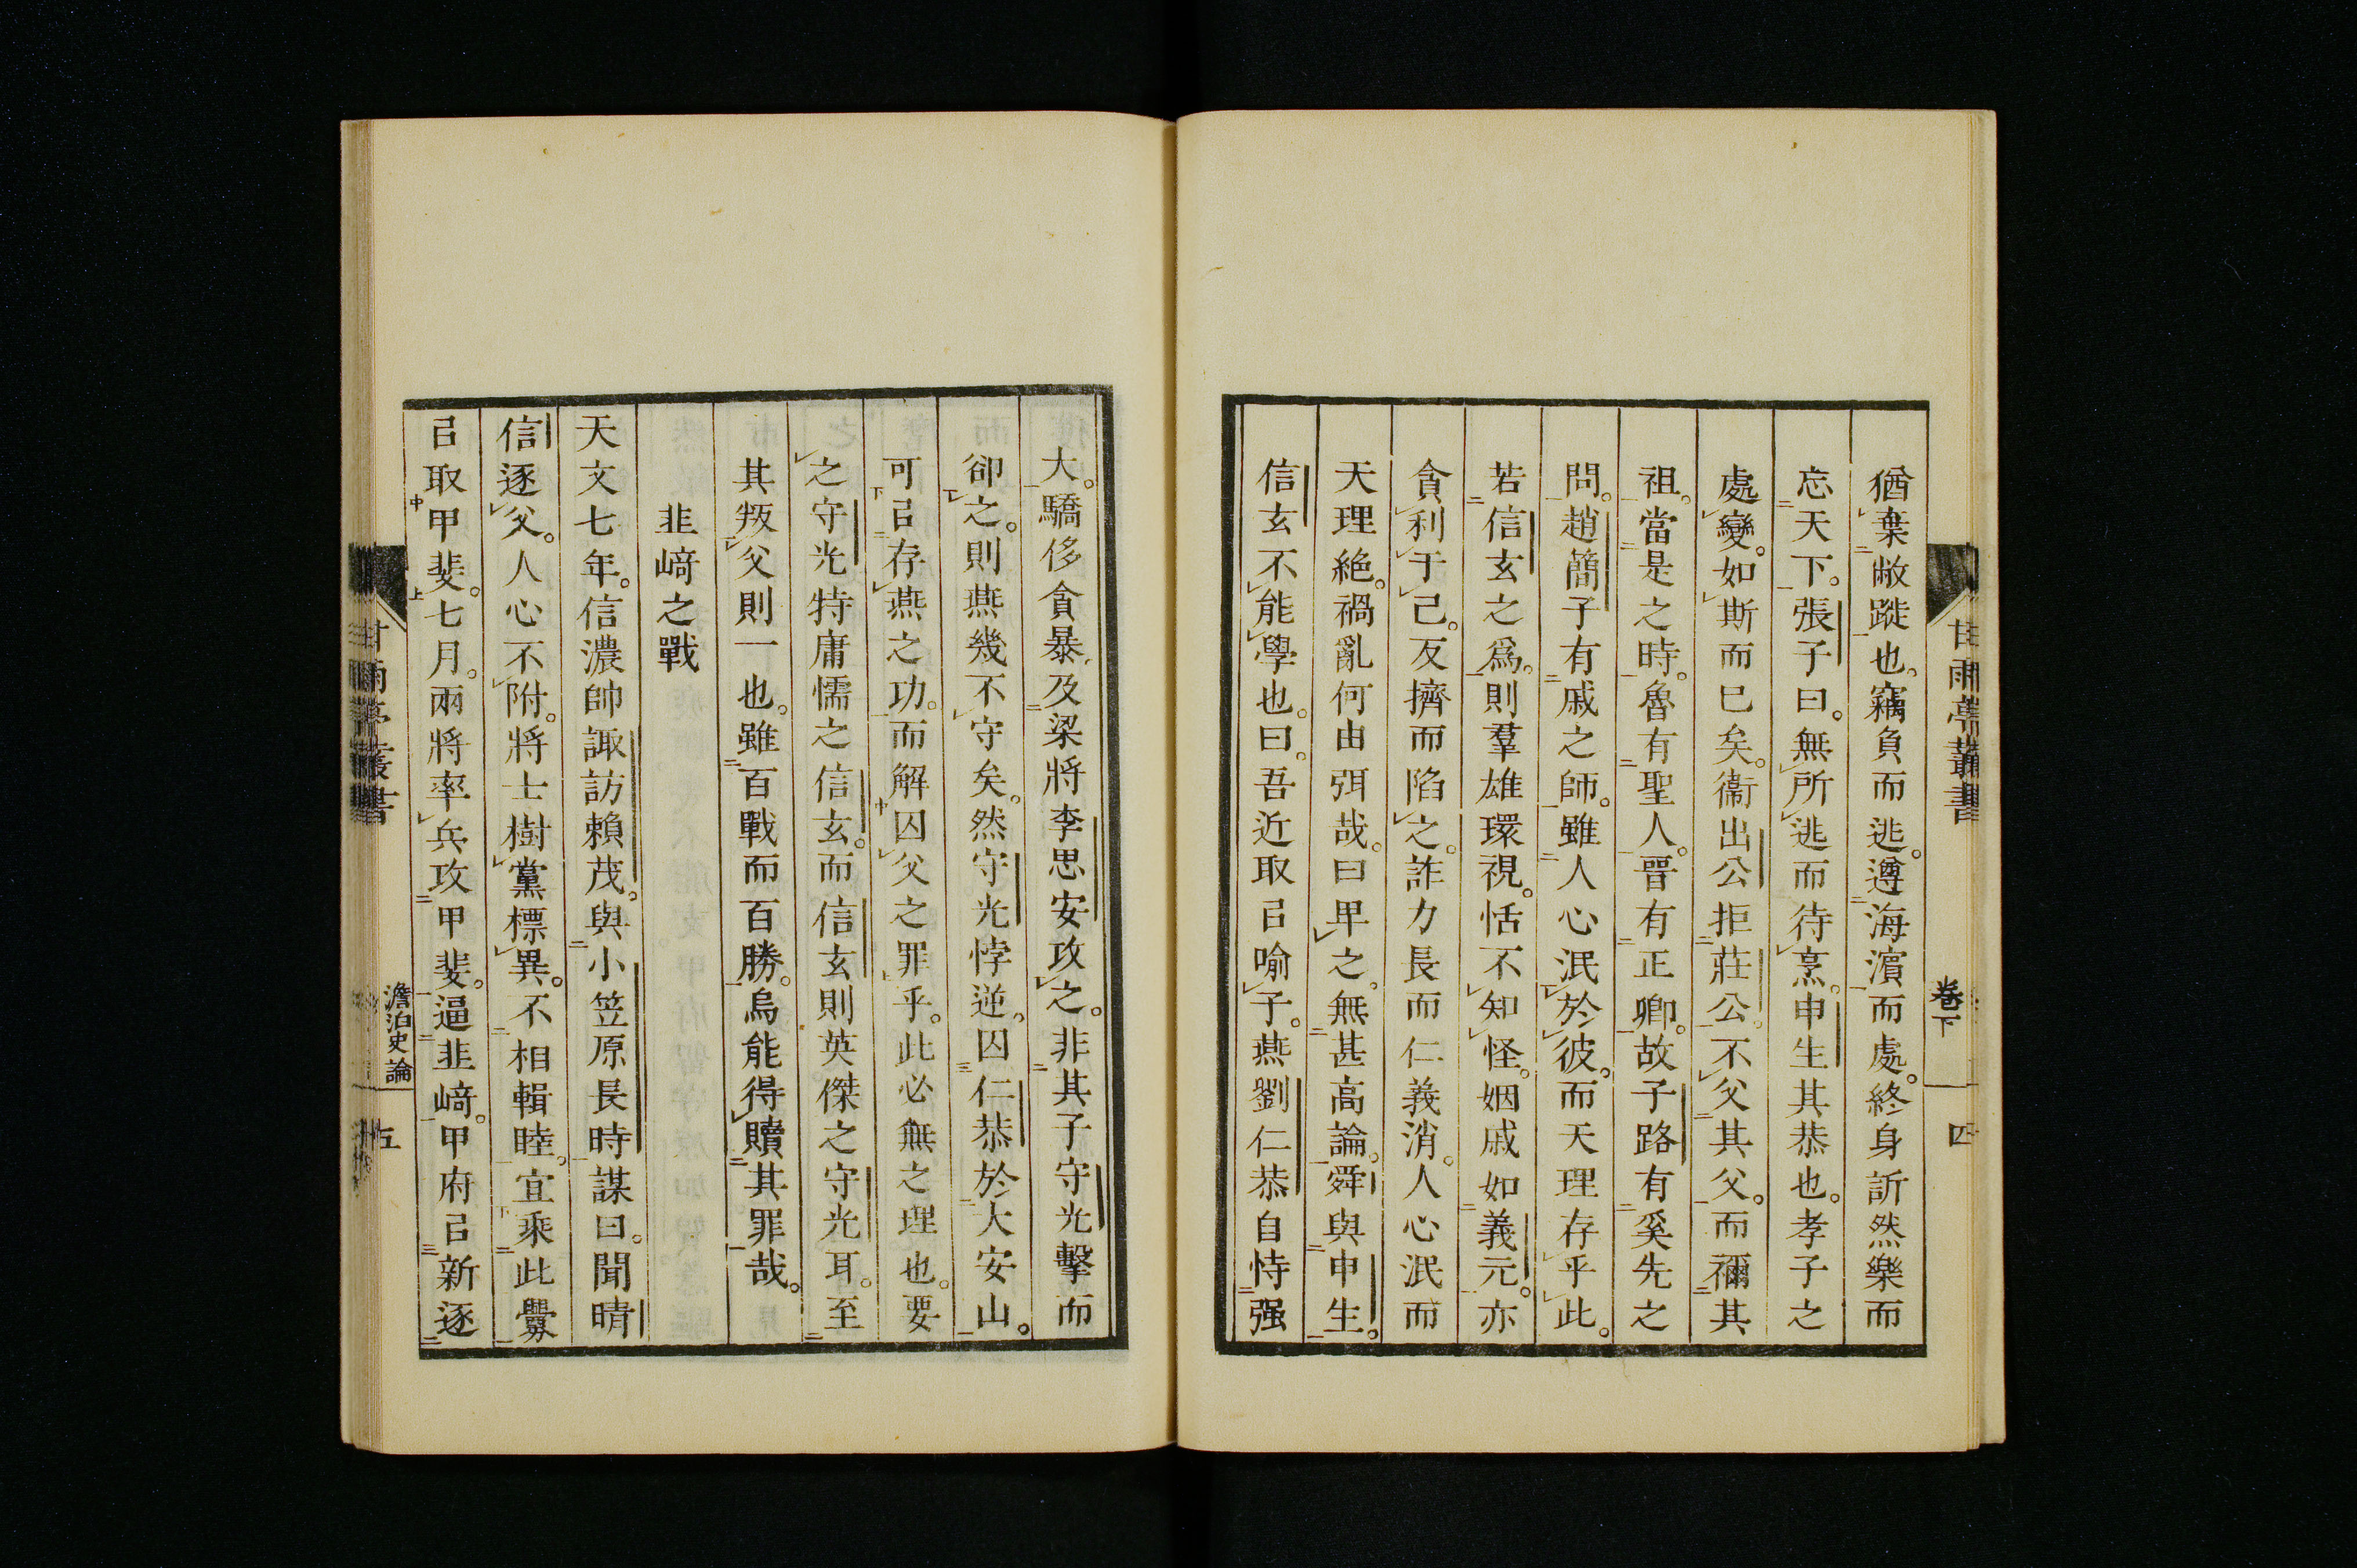 甘雨亭叢書
卷下
四
猶棄敝蹝也。竊負而逃。遵海濱而處。終身訢然樂而
忘天下。張子曰。無所逃而待烹。申生其恭也。孝子之
處變。如斯而已矣。衞出公拒莊公。不父其父。而禰其
祖。當是之時。魯有聖人。晉有正卿。故子路有奚先之
問。趙簡子有戚之師。雖人心泯於彼。而天理存乎此。
若信玄之爲。則羣雄環視。恬不知怪。姻戚如義元。亦
貪利于己。反擠而陷之。詐力長而仁義消。人心泯而
天理絕。禍亂何由弭哉。曰卑之。無甚高論。舜與申生。
信玄不能學也。曰。吾近取㠯喻子。燕劉仁恭自恃强
大。驕侈貪暴。及梁將李思安攻之。非其子守光擊而
卻之。則燕幾不守矣。然守光悖逆。囚仁恭於大安山。
可㠯存燕之功。而解囚父之罪乎。此必無之理也。要
之守光特庸懦之信玄。而信玄則英傑之守光耳。至
其叛父則一也。雖百戰而百勝。烏能得贖其罪哉。
韮﨑之戰
天文七年。信濃帥諏訪賴茂。與小笠原長時謀曰。聞晴
信逐父。人心不附。將士樹黨標異。不相輯睦。宜乘此釁
㠯取甲斐。七月。兩將率兵攻甲斐。逼韮﨑。甲府㠯新逐
甘雨亭叢書
澹泊史論
五